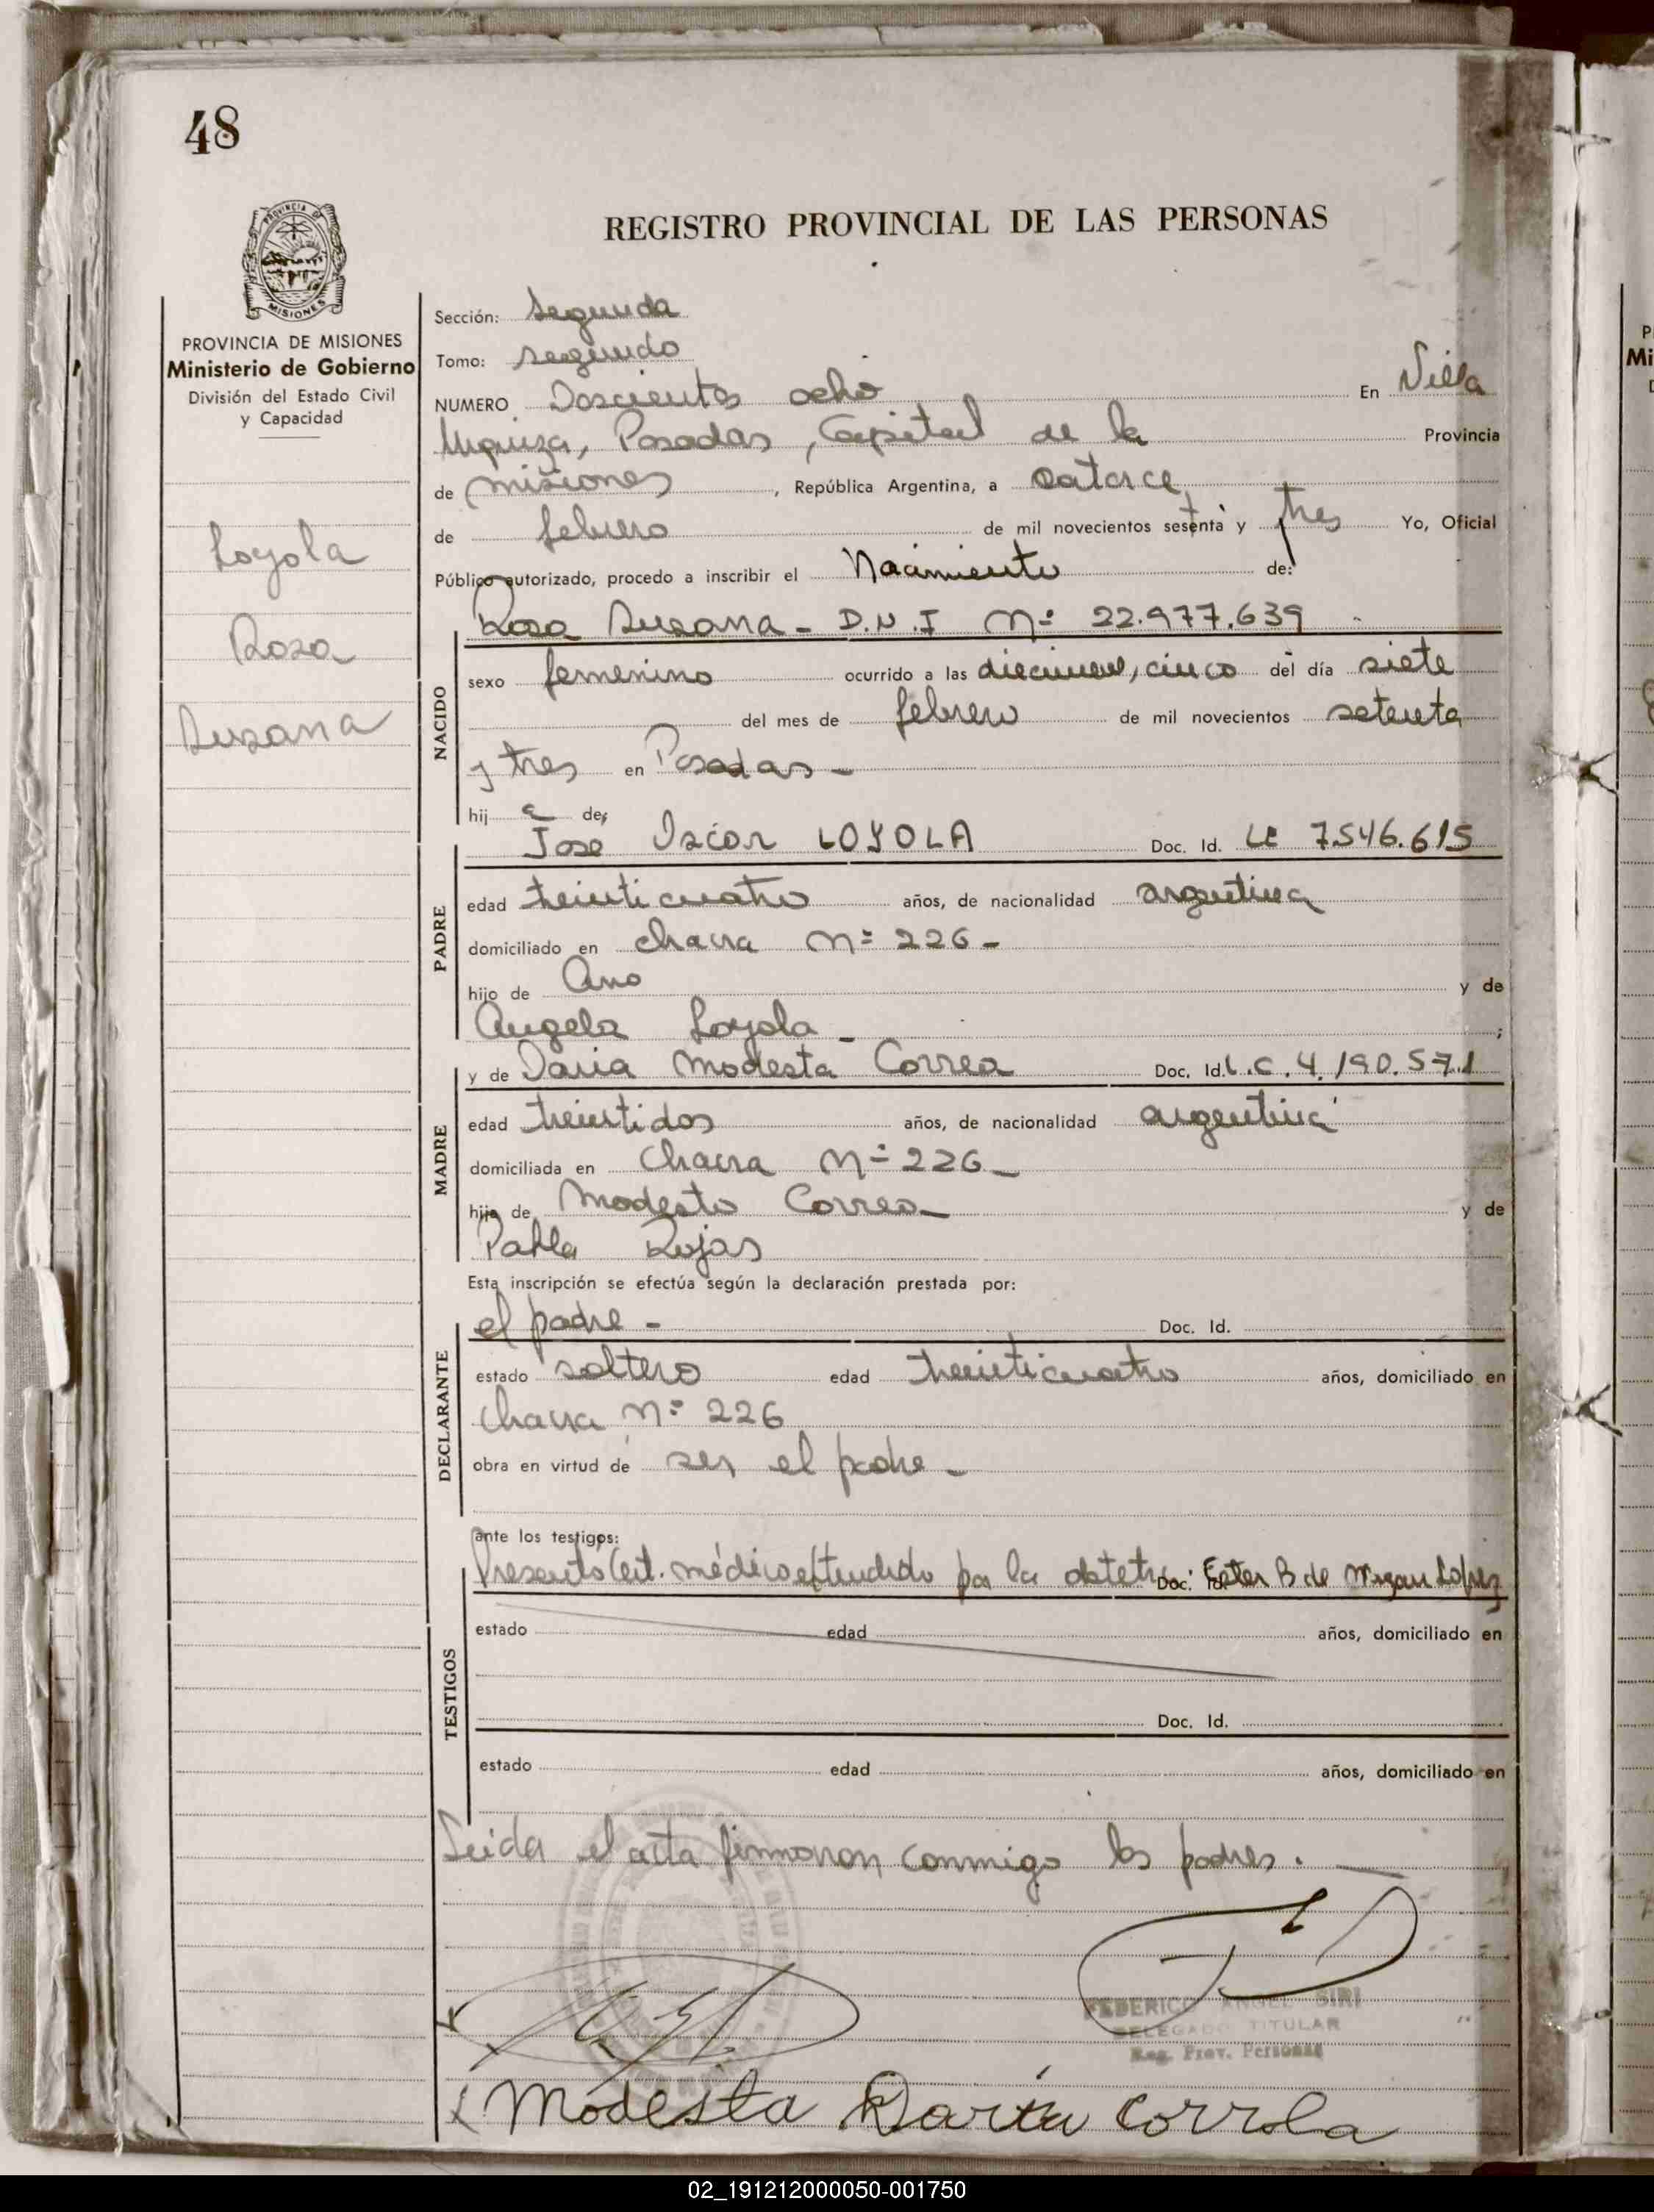 48
REGISTRO PROVINCIAL DE LAS PERSONAS
PROVINCIA DE MISIONES
MISIONES
PROVINCIA DE MISIONES
Ministerio de Gobierno
División del Estado Civil
y Capacidad
Loyola
Rosa
Susana
Sección: Segunda
Tomo: segundo
NUMERO Doscientos ocho En Villa
Urquiza, Posadas, Capital de la Provincia
de misiones, República Argentina, a catorce
de febrero de mil novecientos setenta y tres Yo, Oficial
Público autorizado, procedo a inscribir el Nacimiento de:
Rosa Susana - D.N.I Nº 22.977.639
NACIDO
sexo femenino ocurrido a las diecinueve, cinco del día siete
del mes de febrero de mil novecientos setenta
y tres en Posadas -
hij a de:
Jose Oscar LOYOLA Doc. Id. LE 7.546.615
PADRE
edad treinticuatro años, de nacionalidad argentina
domiciliado en chacra Nº 226 -
hijo de y de
Angela Loyola -;
y de Daria Modesta Correa Doc. Id. L.C. 4.190.571
MADRE
edad treintidos años, de nacionalidad argentina
domiciliada en Chacra Nº 226 -
hija de Modesto Correa - y de
Pabla Rojas
Esta inscripción se efectúa según la declaración prestada por:
el padre - Doc. Id.
DECLARANTE
estado soltero edad treinticuatro años, domiciliado en
chacra Nº 226
obra en virtud de ser el padre -
ante los testigos:
Presento Cert. médico extendido por la obtetr. Doc. Id. Ester B de Lopez
TESTIGOS
estado edad años, domiciliado en
Doc. Id.
estado edad años, domiciliado en
Leida el acta firmaron conmigo los padres. -
FEDERICO ANGEL SIRI
DELEGADO TITULAR
Reg. Prov. Personas
x Modesta Daria Corrola
02_191212000050-001750